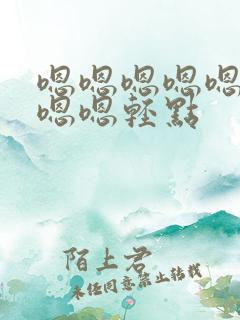 嗯嗯嗯嗯嗯
嗯嗯輕點
陌上君
未經同意禁止轉載